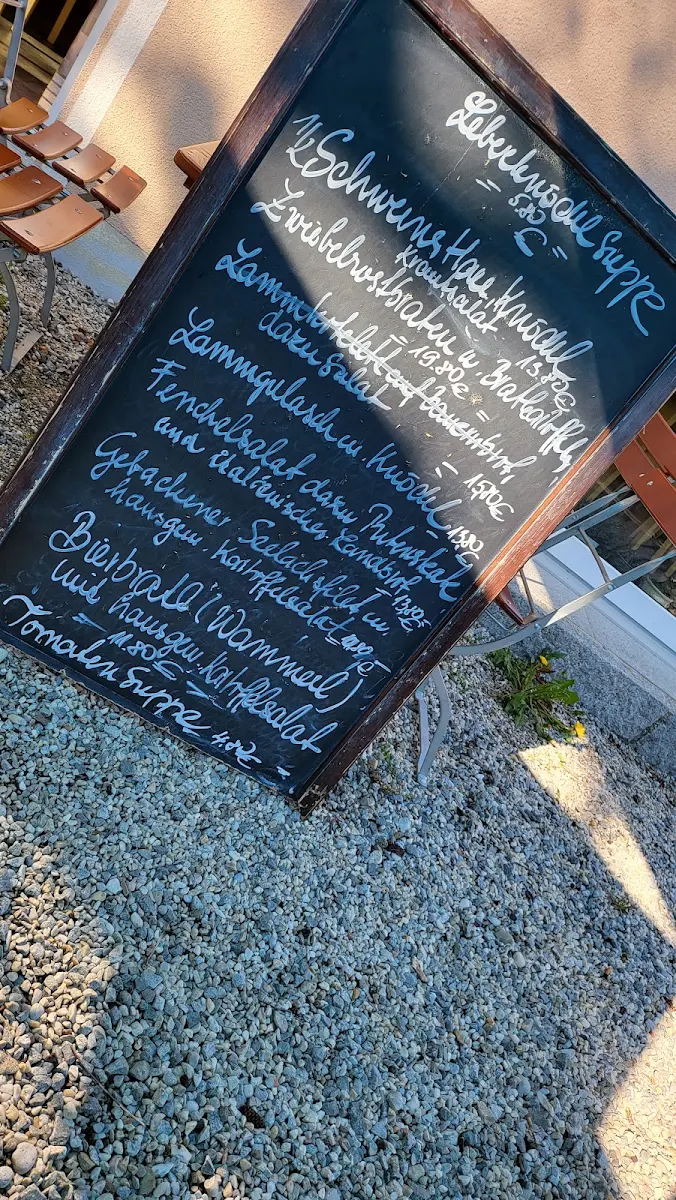 Leberknödelsuppe
= 5.80 € =
1/2 Schweins Haxe, Knödel
Krautsalat 13.80 €
Zwiebelrostbraten u. Bratkartoffeln
= 19.80 € =
Lamm
dazu Salat = 15,80 €
Lammgulasch m. Knödel 13.80
Fenchelsalat dazu Putensteak
und italienischer Landbrot 13.80 €
Gebackener Seelachsfilet m.
hausgem. Kartoffelsalat
Bierbratl (Wammerl)
mid hausgem. Kartoffelsalat
= 11.80 € =
Tomatensuppe 4.80 € =